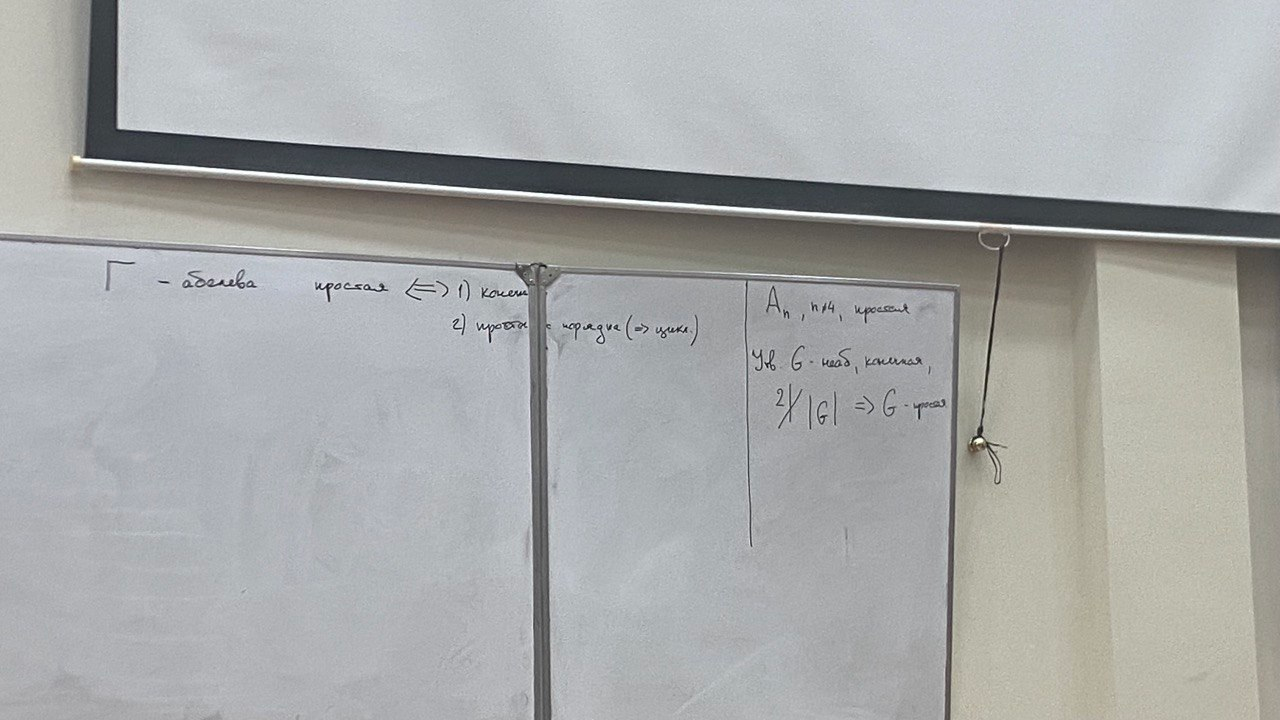 Γ – абелева простая <=> 1) конеч
2) просто порядка (=> цикл.)
Aₙ, n≠4, простая
Утв. G - неаб, конечная,
2∤|G| => G - простая